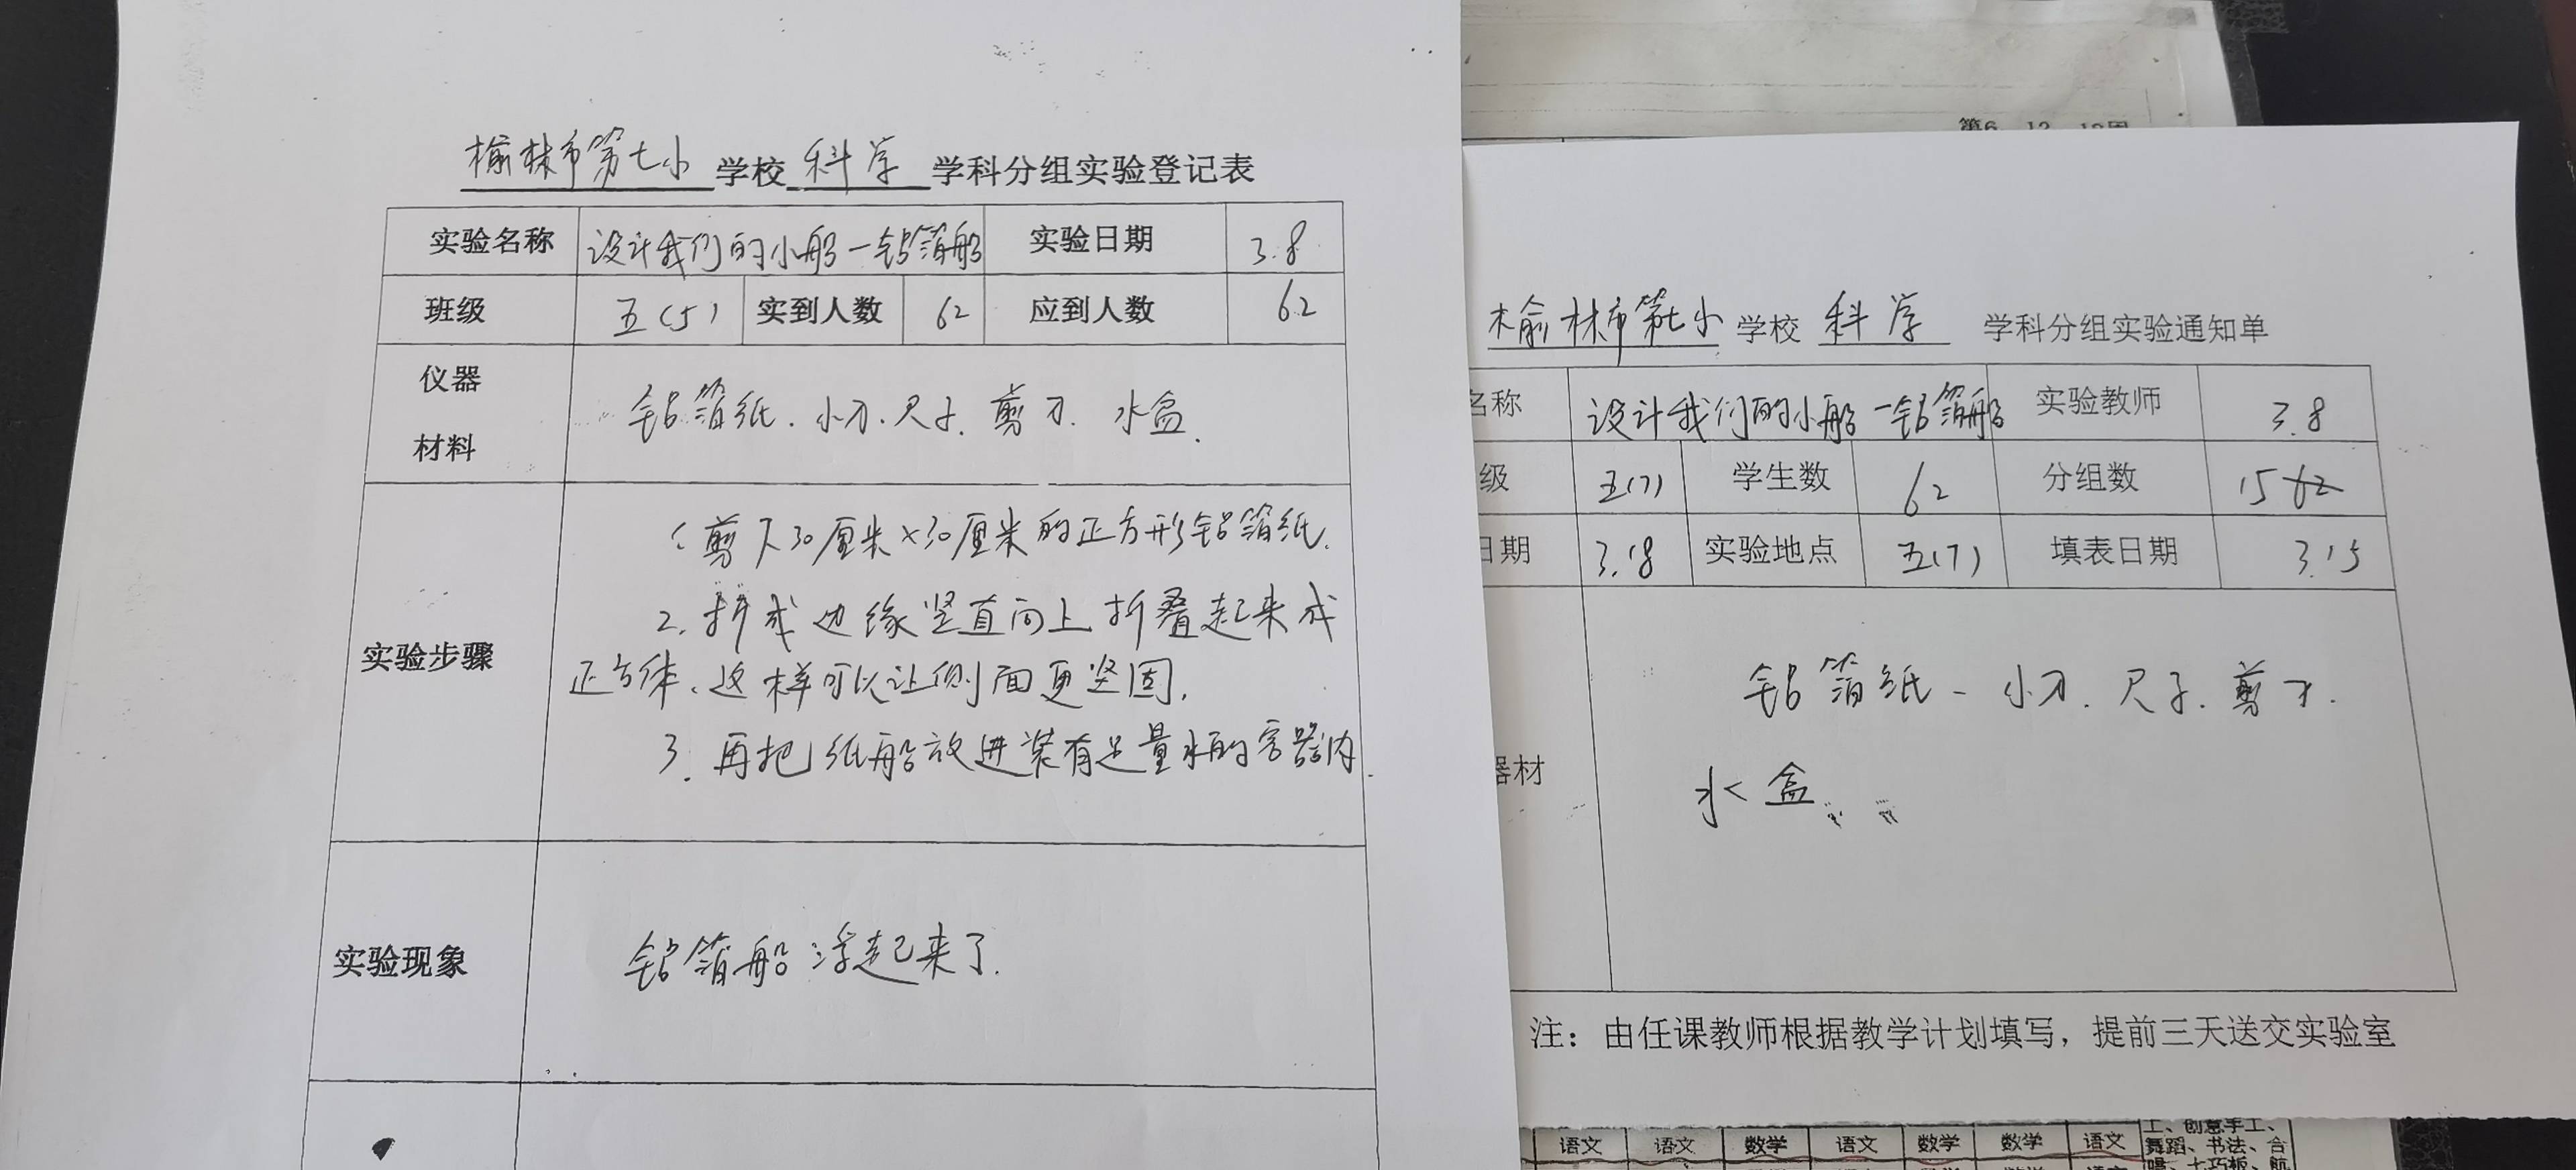 榆林市第七小 学校 科学 学科分组实验登记表
实验名称 设计我们的小船—铝箔船 实验日期 3.8
班级 五(5) 实到人数 62 应到人数 62
仪器
材料
铝箔纸、小刀、尺子、剪刀、水盒.
实验步骤
1.剪下30厘米×30厘米的正方形铝箔纸.
2.折成边缘竖直向上折叠起来成
正方体、这样可以让侧面更坚固.
3.再把纸船放进装有足量水的容器内.
实验现象
铝箔船浮起来了.
第6、12、18周
榆林市第七小 学校 科学 学科分组实验通知单
名称 设计我们的小船—铝箔船 实验教师 3.8
级 五(7) 学生数 62 分组数 15
日期 3.18 实验地点 五(7) 填表日期 3.15
器材
铝箔纸、小刀、尺子、剪刀.
水盒、
注：由任课教师根据教学计划填写，提前三天送交实验室
语文 语文 数学 语文 数学 数学 语文
工、创意手工、
舞蹈、书法、合
唱、七巧板、航